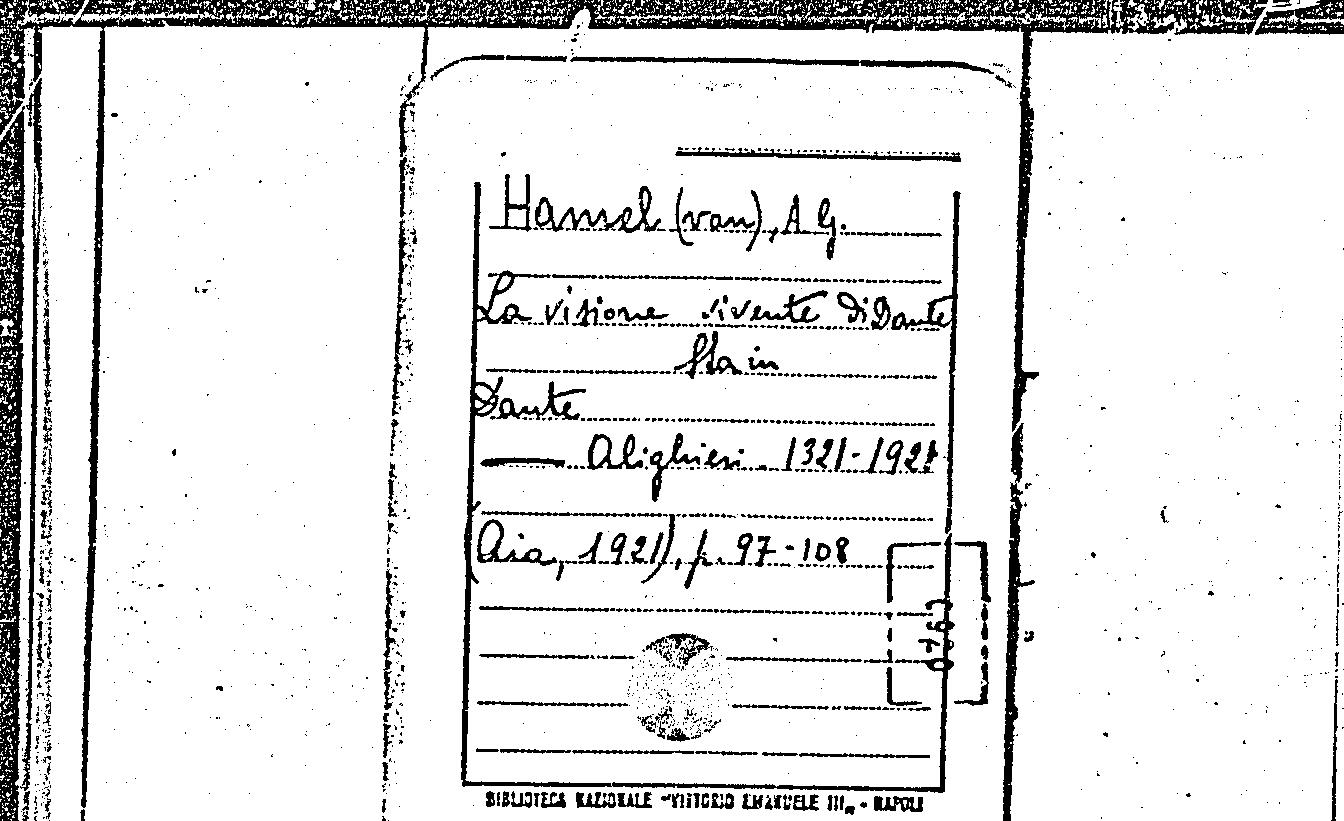 Hamel (van), A G.
La visione vivente di Dante
Sta in
Dante
— Alighieri. 1321-1921
(Aia, 1921), p. 97-108
BIBLIOTECA NAZIONALE "VITTORIO EMANUELE III„ - NAPOLI